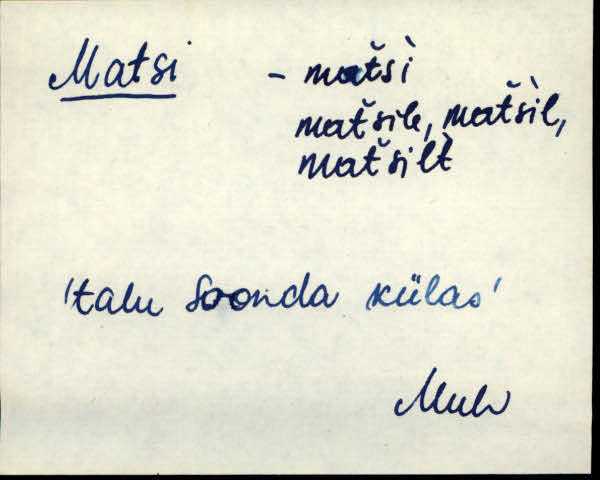 Matsi - matši̇̀
matšile, matšìl,
matšilt̀
'talu Soonda külas'
Muh